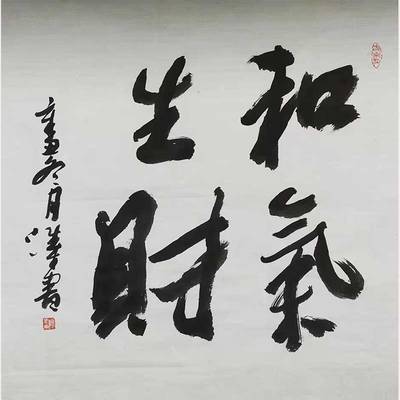 和氣
生財
冬月
書